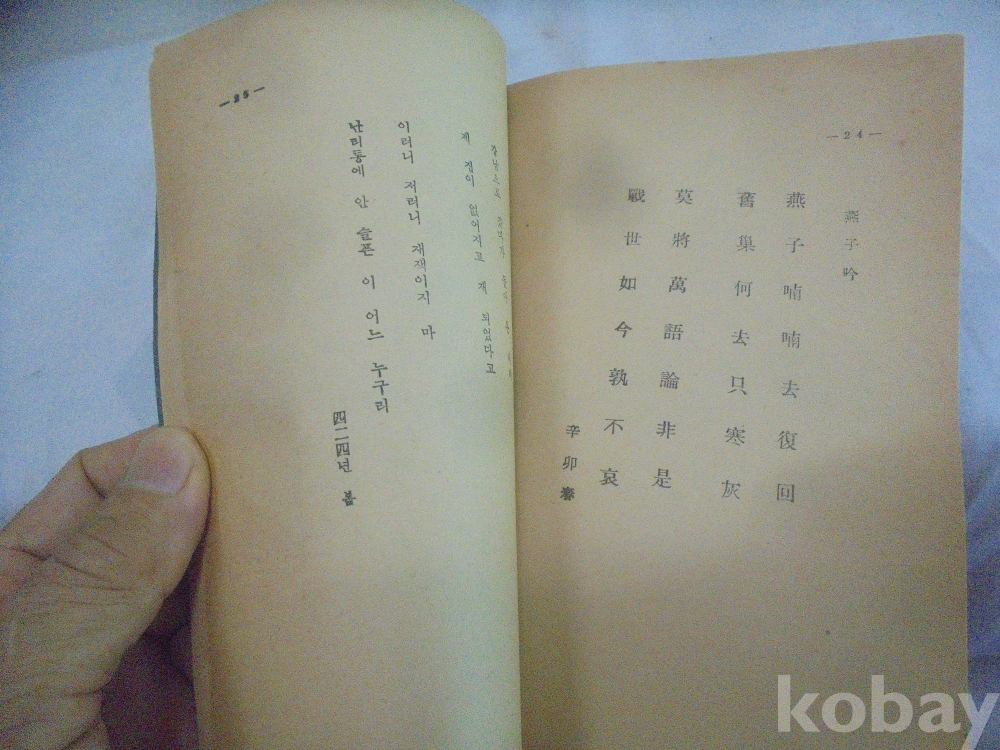 —24—
燕子吟
燕子喃喃去復回
舊巢何去只寒灰
莫將萬語論非是
戰世如今孰不哀
辛卯春
—25—
강남으로
제 집이 없어지고 재 되었다고
이러니 저러니 재잭이지 마
난리통에 안 슬픈 이 어느 누구리
四二四년 봄
kobay